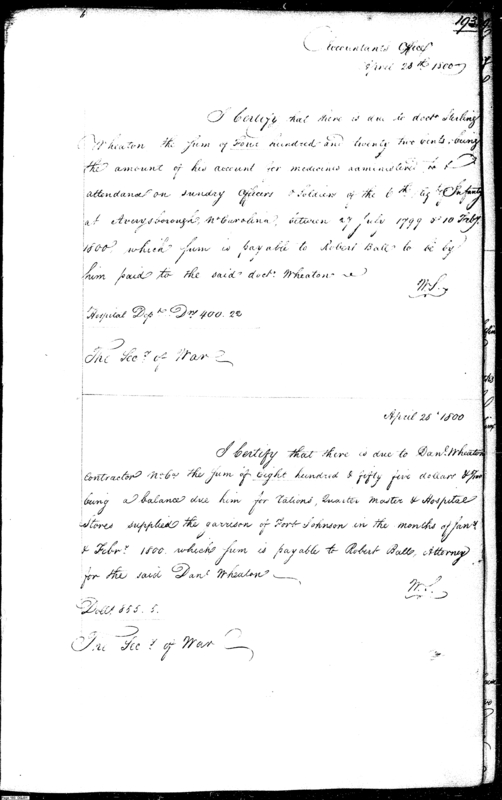 193
Accountants Office
April 28th 1800
I Certify that there is due to doctr Sterling
Wheaton the sum of Four hundred and twenty two cents, being
the amount of his account for medicines administered to &
attendance on sunday Officers & Soldiers of the 6th Regt Infanty
at Averysborough, No Carolina, between 27 July 1799 & 10 Feby
1800, which sum is payable to Robert Ball to be by
him paid to the said doctr Wheaton
W.S.
Hospital Dept Drs 400.22
The Secy of War
April 28 1800
I Certify that there is due to Danl Wheaton
Contractor No Ca the sum of Eight hundred & fifty five dollars &
being a balance due him for rations, Quarter Master & Hospital
Stores supplied the garrison of Fort Johnson in the months of Jany
& Febry 1800, which sum is payable to Robert Ball, Attorney
for the said Danl Wheaton
W.S.
Dolls 855.5.
The Secy of War